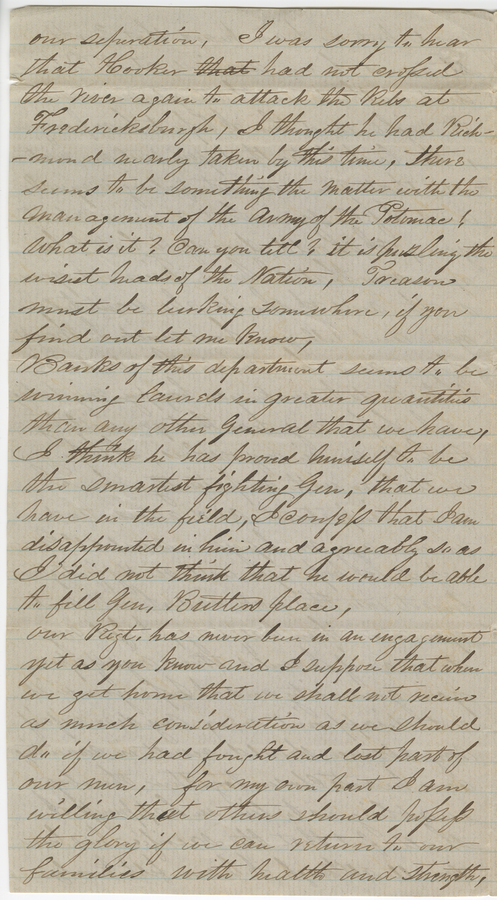 our seperation, I was sorry to hear
that Hooker that had not crossed
the river again to attack the Rebs at
Fredericksburgh, I thought he had Rich-
-mond nearly taken by this time, There
seems to be something the matter with the
management of the Army of the Potomac!
What is it? Can you tell? it is puzling the
wisest heads of the Nation, Treason
must be lurking somewhere, if you
find out let me know,
Banks of this department seems to be
winning laurels in greater quantities
than any other General that we have,
I think he has proved himself to be
the smartest fighting Gen, that we
have in the field, I confess that I am
disappointed in him and agreeably so as
I did not think that he would be able
to fill Gen, Butlers place,
our Regt. has never been in an engagement
yet as you know and I suppose that when
we get home that we shall not receive
as much consideration as we should
do if we had fought and lost part of
our men, for my own part I am
willing that others should possess
the glory if we can return to our
families with health and strength,